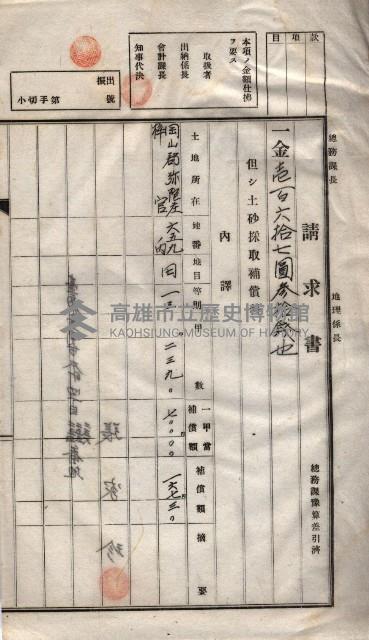 款項目
本項ノ金額仕拂
ヲ要ス
取扱者
出納係長
會計課長
知事代決
出
振
號
第手切小
總務課長
地理係長
總務課豫算差引濟
請求書
一金壱百六拾七圓参拾錢也
但シ土砂採取補償
內譯
土地所在
地番
地目
等則
甲
數
一甲當補償額
補償額
摘要
岡山郡弥陀庄
六五九
田
一三
二三九〇
七〇〇〇〇
一六七三〇
張家珍
高雄市立歷史博物館
KAOHSIUNG MUSEUM OF HISTORY